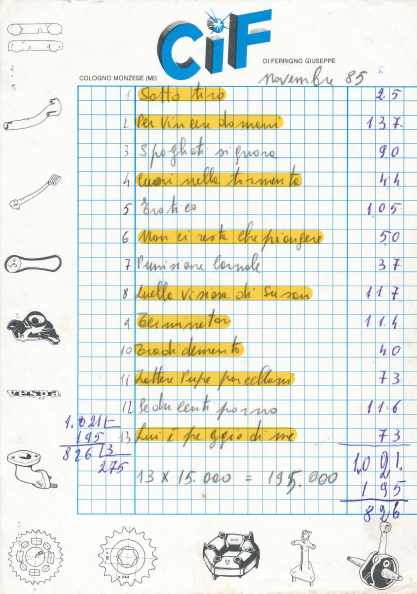 CiF
DI FERRIGNO GIUSEPPE
COLOGNO MONZESE (MI)
novembre 85
1 Sotto tiro 25
2 Per vincere domani 137
3 Spogliati signora 90
4 Cuori nella tormenta 44
5 Erotico 105
6 Non ci resta che piangere 50
7 Punizione Carnale 37
8 Quella viziosa di Susan 117
9 Terminator 114
10 40
11 Lattere Pupe porcelloni 73
12 Seducenti porno 116
13 Lui è peggio di me 73
vespa
1.021
195
826 3
275
13 x 15.000 = 195.000
1.021.
195
826